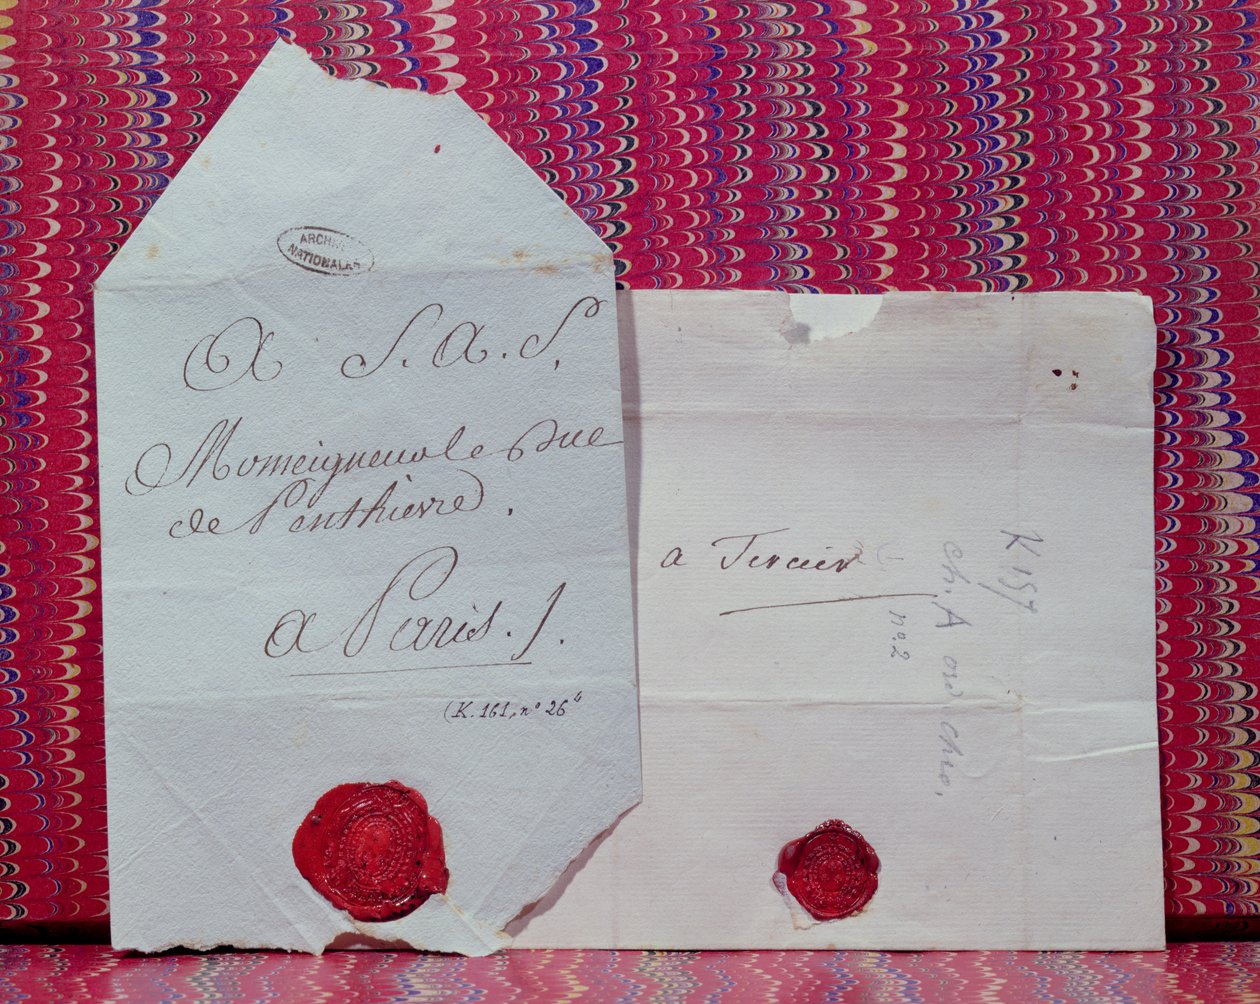 ARCHIVES
NATIONALES
A S. A. S.
Monseigneur le Duc
de Penthievre.
a Paris. /.
(K. 161, nº 26⁴
a Tercier
K 157
nº. 2